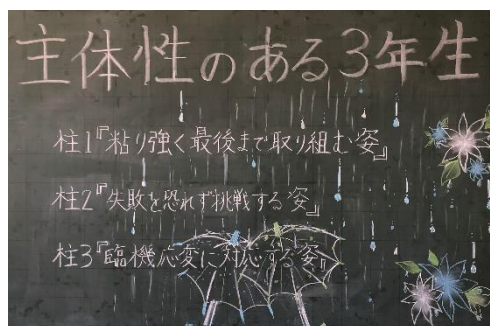 主体性のある3年生
柱1『粘り強く最後まで取り組む姿』
柱2『失敗を恐れず挑戦する姿』
柱3『臨機応変に対応する姿』